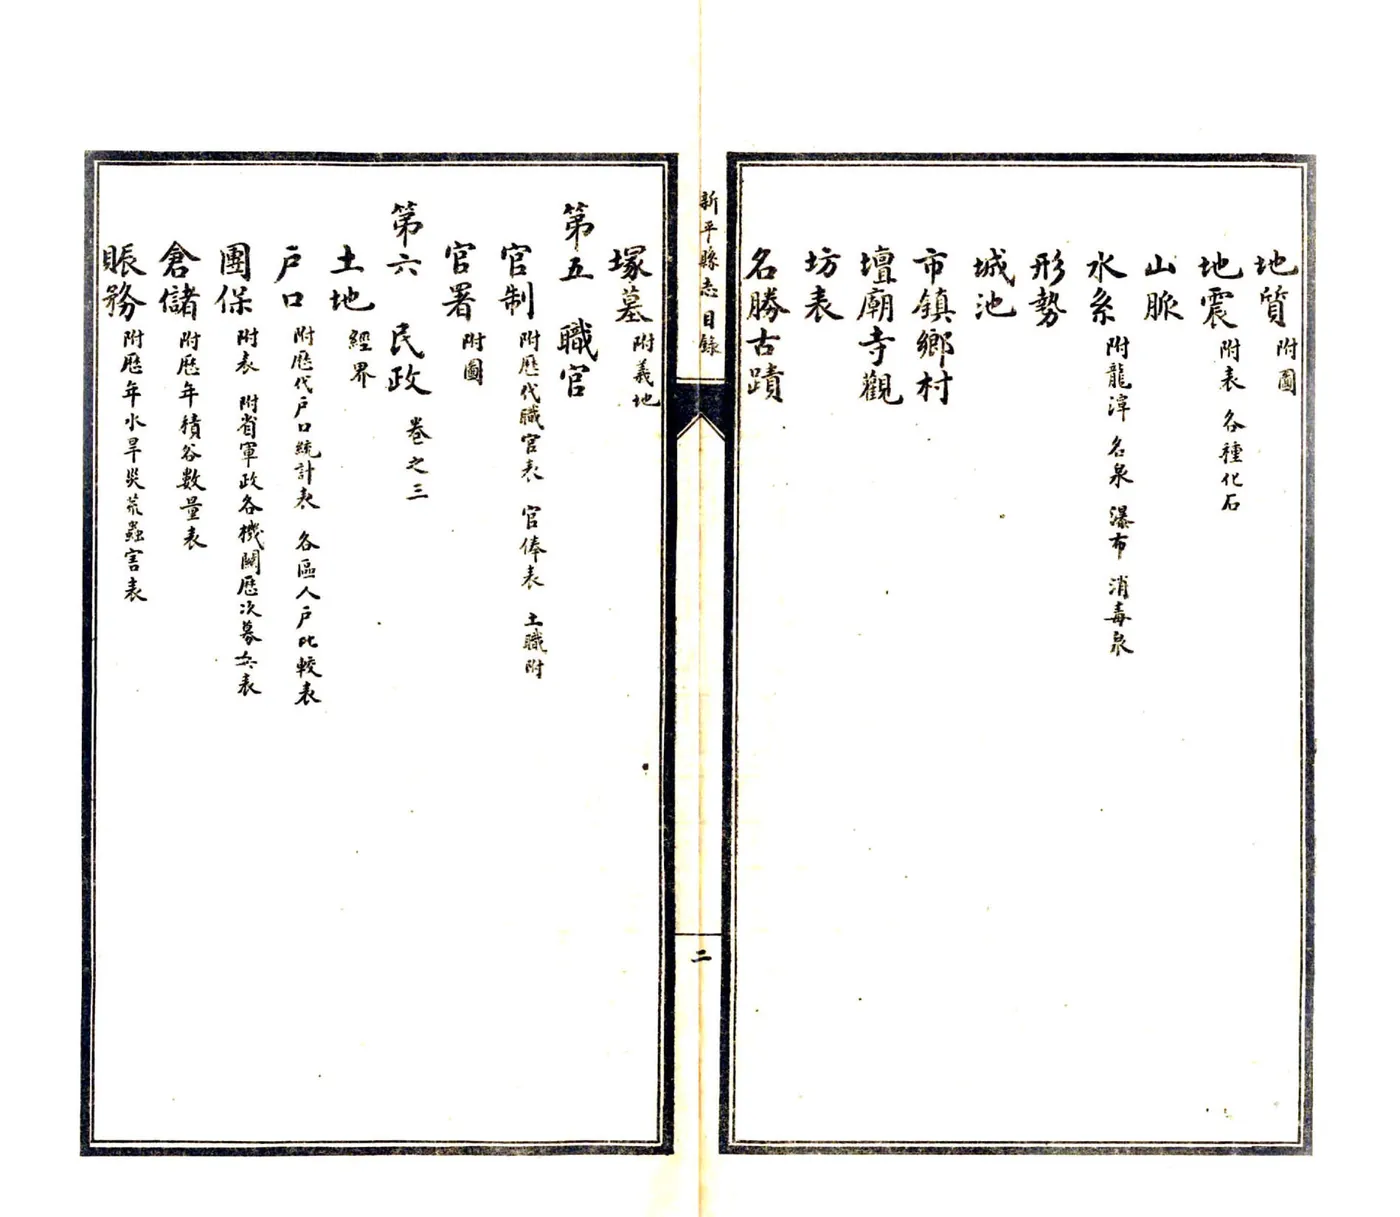 地質 附圖
地震 附表 各種化石
山脈
水系 附龍潭 名泉 瀑布 消毒泉
形勢
城池
市鎮鄉村
壇廟寺觀
坊表
名勝古蹟
新平縣志目錄
二
塚墓 附義地
第五 職官
官制 附歷代職官表 官俸表 土職附
官署 附圖
第六 民政 卷之三
土地 經界
戶口 附歷代戶口統計表 各區人戶比較表
團保 附表 附省軍政各機關歷次募兵表
倉儲 附歷年積谷數量表
賑務 附歷年水旱災荒蟲害表